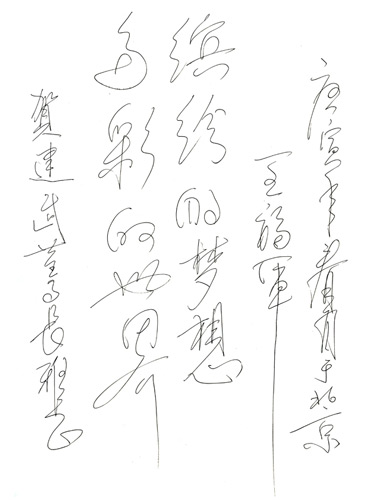 賀建武董事長雅正
多彩的世界
缤纷的梦想
王福軍
庚寅年春月于北京